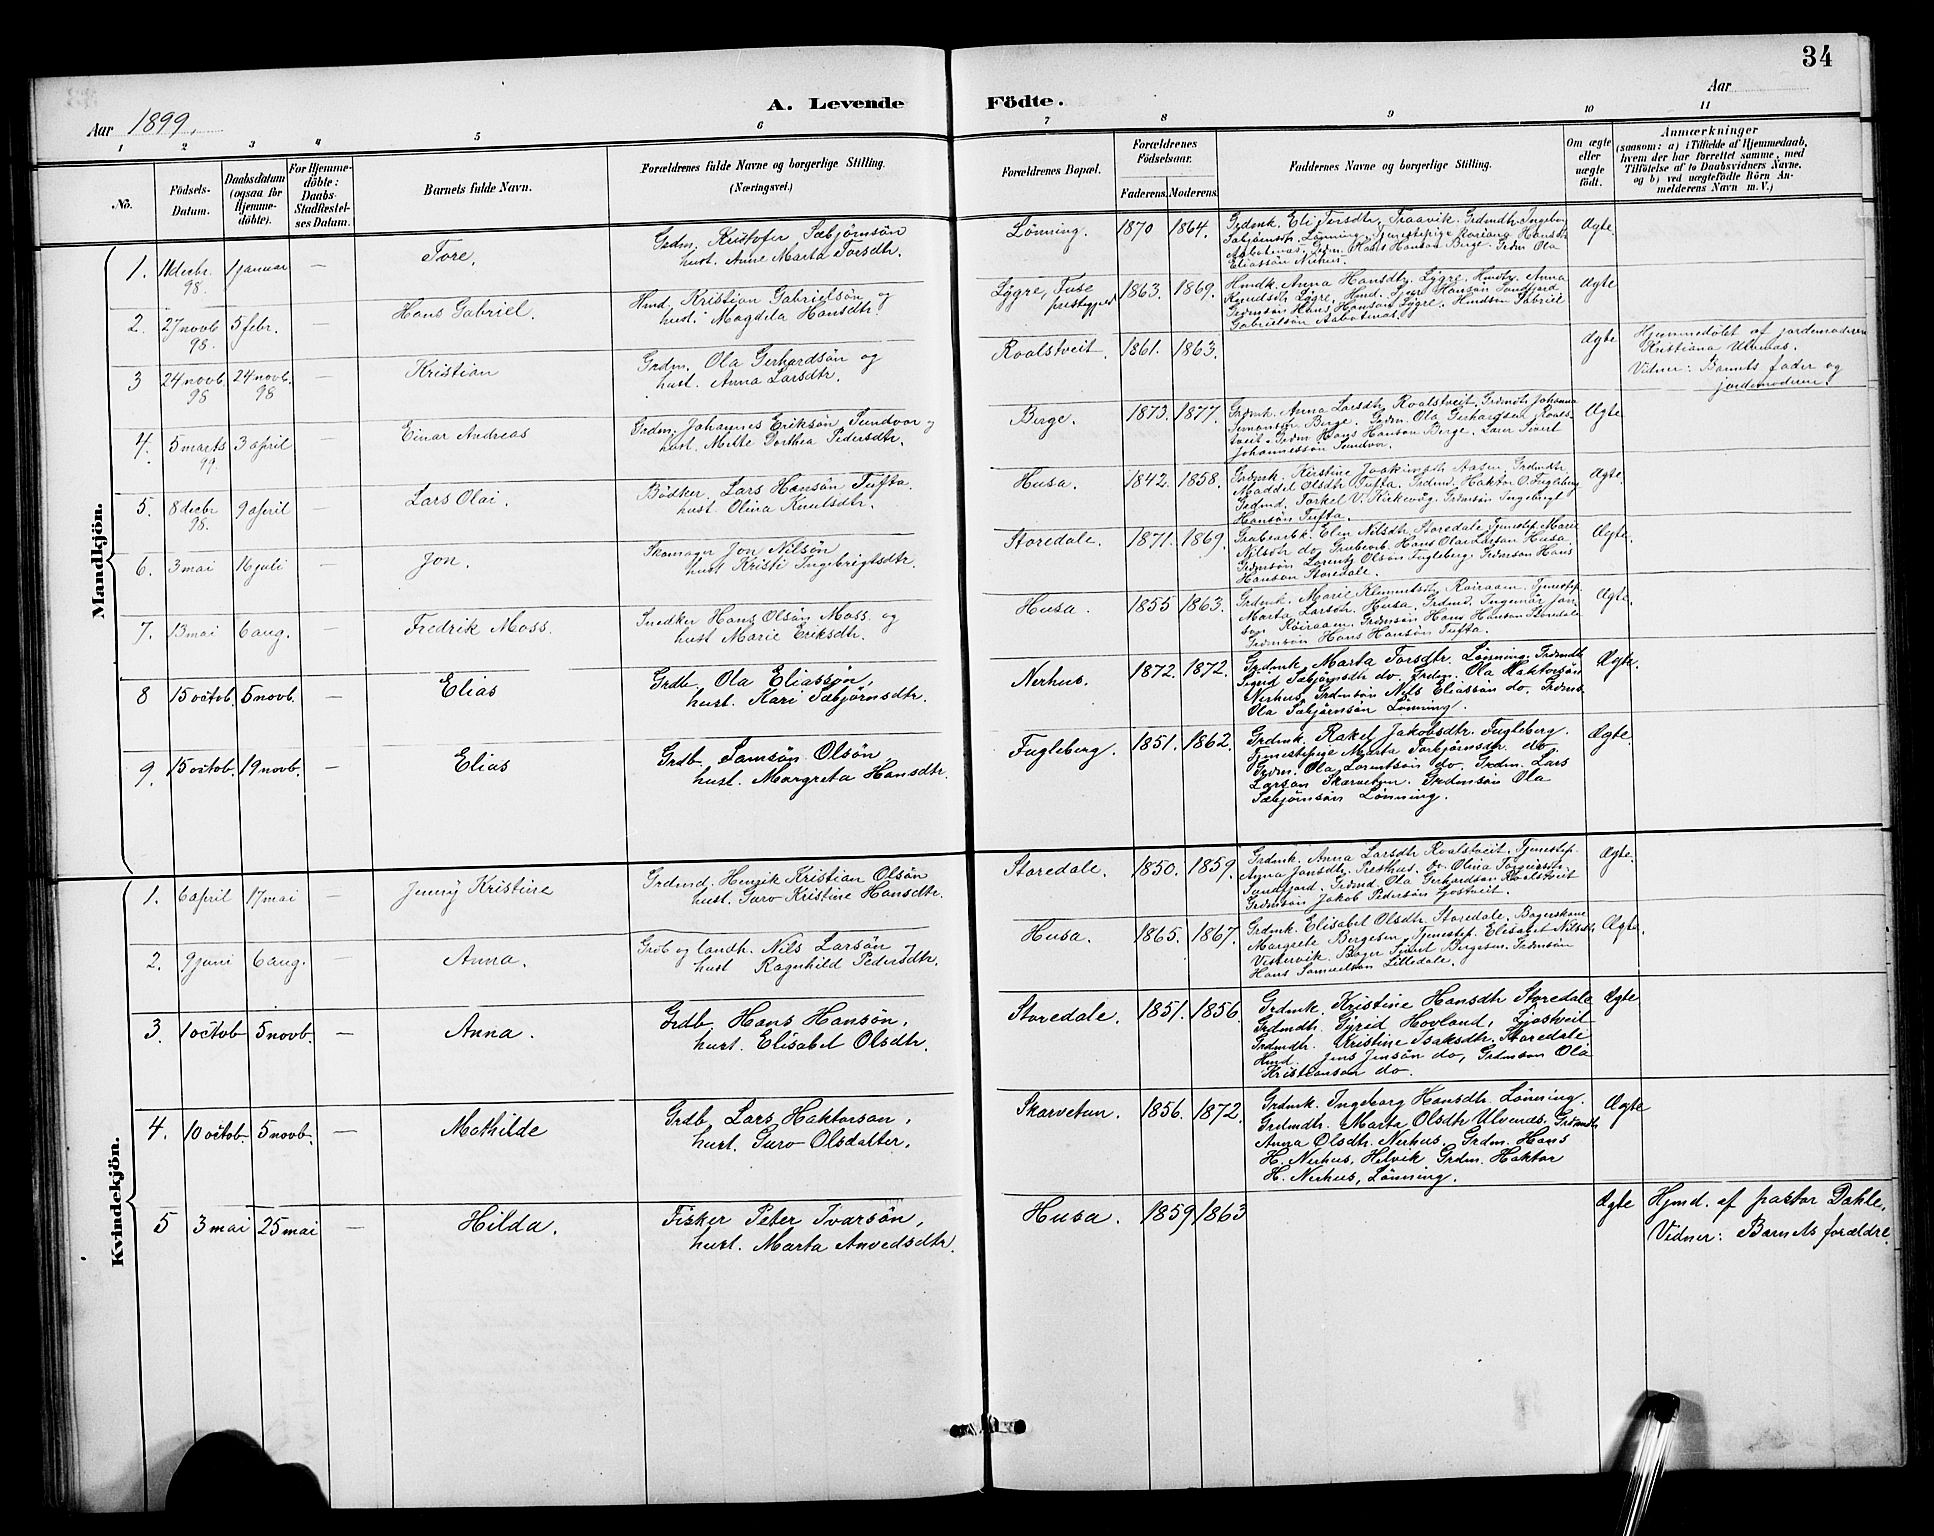 34
A. Levende Födte.
Aar 1899.
Aar
1 2 3 4 5 6 7 8 9 10 11
No.
Födsels-Datum.
Daabsdatum (ogsaa for Hjemme-döbte).
For Hjemme-döbte: Daabs-Stadfæstel-ses Datum.
Barnets fulde Navn.
Forældrenes fulde Navne og borgerlige Stilling.
(Næringsvei.)
Forældrenes Bopæl.
Forældrenes Födselsaar.
Faderens. Moderens.
Faddernes Navne og borgerlige Stilling.
Om ægte eller uægte født.
Anmærkninger
(saasom: a) i Tilfælde af Hjemmedaab,
hvem der har forrettet samme, med
Tilföielse af to Daabsvidners Navne,
og b) ved uægtefödte Börn An-
melderens Navn m. V.)
Mandkjön.
1. 11 decbr. 98. 1 januar — Tore. Grdm. Kristofer Sæbjørnsön
hust. Anne Marta Torsdtr.
Lönning. 1870 1864. Grdmk. Eli Torsdtr. Traavik. Grdmdtr. Ingeborg
Sæbjørnsdtr. Lönning. Tjenestepige Hansdtr.
Aabotnæs. Grdm. Hans Hanson Berge. Grdm Ola
Eliassön Nerhus.
Ægte.
2. 27 novb. 98. 5 febr. — Hans Gabriel. Hmd. Kristian Gabrielsön og
hust. Magdela Hansdtr.
Lygre, Fuse
prestegjeld 1863. 1869. Hmdk. Anna Hansdtr. Lygre. Anna
Knudsdtr. Lygre. Hmd. Hansön Sundfjord
Grdmsön Hans Hansön Lygre. Hmdsön Gabriel
Gabrielsön Aabotnæs.
Ægte
3 24 novb. 98 24 novb. 98 — Kristian Grdm. Ola Gerhardsön og
hust. Anna Larsdtr.
Roalstveit. 1861. 1863. Ægte Hjemmedöbt af jordemoderen
Kristiana Ulvenæs.
Vidner: Barnets fader og
jordemoderen.
4. 5 marts 99. 3 april — Einar Andreas Grdm. Johannes Eriksön Sundvor og
hust. Mette Dorthea Pedersdtr.
Berge. 1873. 1877. Grdmk. Anna Larsdtr Roalstveit. Grdmdtr Johanna
Berge. Grdm. Ola Gerhardsen Roals-
tveit. Grdm Hans Hanson Berge. Lærer Sivert
Johannesson Sundvor.
Ægte.
5. 8 decbr 98. 9 april — Lars Olai. Bödker. Lars Hansön Tufta.
hust. Olina Knutsdtr.
Husa. 1842. 1858. Grdmk. Kirstine Joakimsdtr Aasen. Grdmdtr.
Maddel Olsdtr Tufta. Grdmd. Haktor O. Fugleberg
Grdmd. Torkel V. Kirkevaag. Grdmsön Ingebrigt
Hansön Tufta.
Ægte.
6. 3 mai 16 juli — Jon. Skomager Jon Nilsön
hust Kristi Ingebrigtsdtr.
Storedale. 1871. 1869. Grubearbk. Elen Nilsdtr Storedale. Tjenestep. Marie
Nilsdtr do. Grubearb. Hans Olai Larson Husa.
Grdmsön Lorentz Olsön Fugleberg. Grdmson Hans
Hanson Storedale.
Ægte.
7. 13 mai 6 aug. — Fredrik Moss. Snedker Hans Olsön Moss. og
hust Marie Eriksdtr.
Husa. 1855 1863. Grdmk. Marie Klemetsdtr Röiraaen. Tjenestep.
Marta Larsdtr. Husa. Grdmd. Ingemar Jon-
son Röiraaen. Grdmsön Hans Hanson Storedale
Grdmsön Hans Hansön Tufta.
Ægte.
8 15 octob. 5 novb. — Elias Grdb. Ola Eliassön,
hust. Kari Sæbjørnsdtr.
Nerhus. 1872. 1872. Grdmk. Marta Torsdtr. Lönning. Grdmdtr
Sigrid Sæbjørnsdtr do. Grdm. Ola Haktorsön
Nerhus. Grdmsön Nils Eliassön do. Grdms.
Ola Sæbjørnsön Lönning.
Ægte.
9. 15 octob. 19 novb. — Elias Grdb. Samsön Olsön
hust. Margreta Hansdtr.
Fugleberg. 1851. 1862. Grdmk. Rakel Jakobsdtr. Fugleberg.
Tjenestepige Marta Torbjørnsdtr do.
Grdm. Ola Lorentsön do. Grdm. Lars
Larson Skarvetun. Grdmsön Ola
Sæbjørnsön Lönning.
Ægte.
Kvindekjön.
1. 6 april 17 mai — Jenny Kristine Grdmd. Henrik Kristian Olsön
hust. Guro Kristine Hansdtr.
Storedale. 1850. 1859. Grdmk. Anna Larsdtr Roalstveit. Tjenestep.
Anna Jonsdtr. Presthus. do. Olina
Sundfjord. Grdmd. Ola Gerhardson Roalstveit
Grdmsön Jakob Pedersön Ljostveit.
Ægte.
2. 9 juni 6 aug. — Anna. Grdb og landh. Nils Larsön
hust Ragnhild Pedersdtr.
Husa. 1865. 1867. Grdmk. Elisabet Olsdtr. Storedale. Bagerskone
Margrete Bergesen. Tjenestep. Elisabet Nilsdtr
Vistervik. Bager Sivert Bergesen. Grdmsön
Hans Samuelson Lilledale.
Ægte.
3. 1 octob 5 novb. — Anna. Grdb. Hans Hansön,
hust. Elisabet Olsdtr.
Storedale. 1851. 1856. Grdmk. Kristine Hansdtr Storedale
Grdmdtr. Gyrid Hovland, Ljostveit
Grdmdtr. Kristine Isaksdtr. Storedale
Hmd. Jens Jensön do, Grdmson Ola
Kristianson do.
Ægte
4. 10 octob. 5 novb. — Mathilde Grdb. Lars Haktorson,
hust. Guro Olsdatter.
Skarvetun. 1856. 1872. Grdmk. Ingeborg Hansdtr. Lönning.
Grdmdtr. Marta Olsdtr Ulvenæs. Grdmdtr
Anna Olsdtr. Nerhus. Grdm. Hans
H. Nerhus, Helvik Grdm. Haktor
H. Nerhus, Lönning.
Ægte
5 3 mai 25 mai — Hilda. Fisker Peter Ivarsön,
hust. Marta Anvedsdtr.
Husa. 1859 1863 Ægte Hjmd. af pastor Dahle.
Vidner: Barnets forældre.